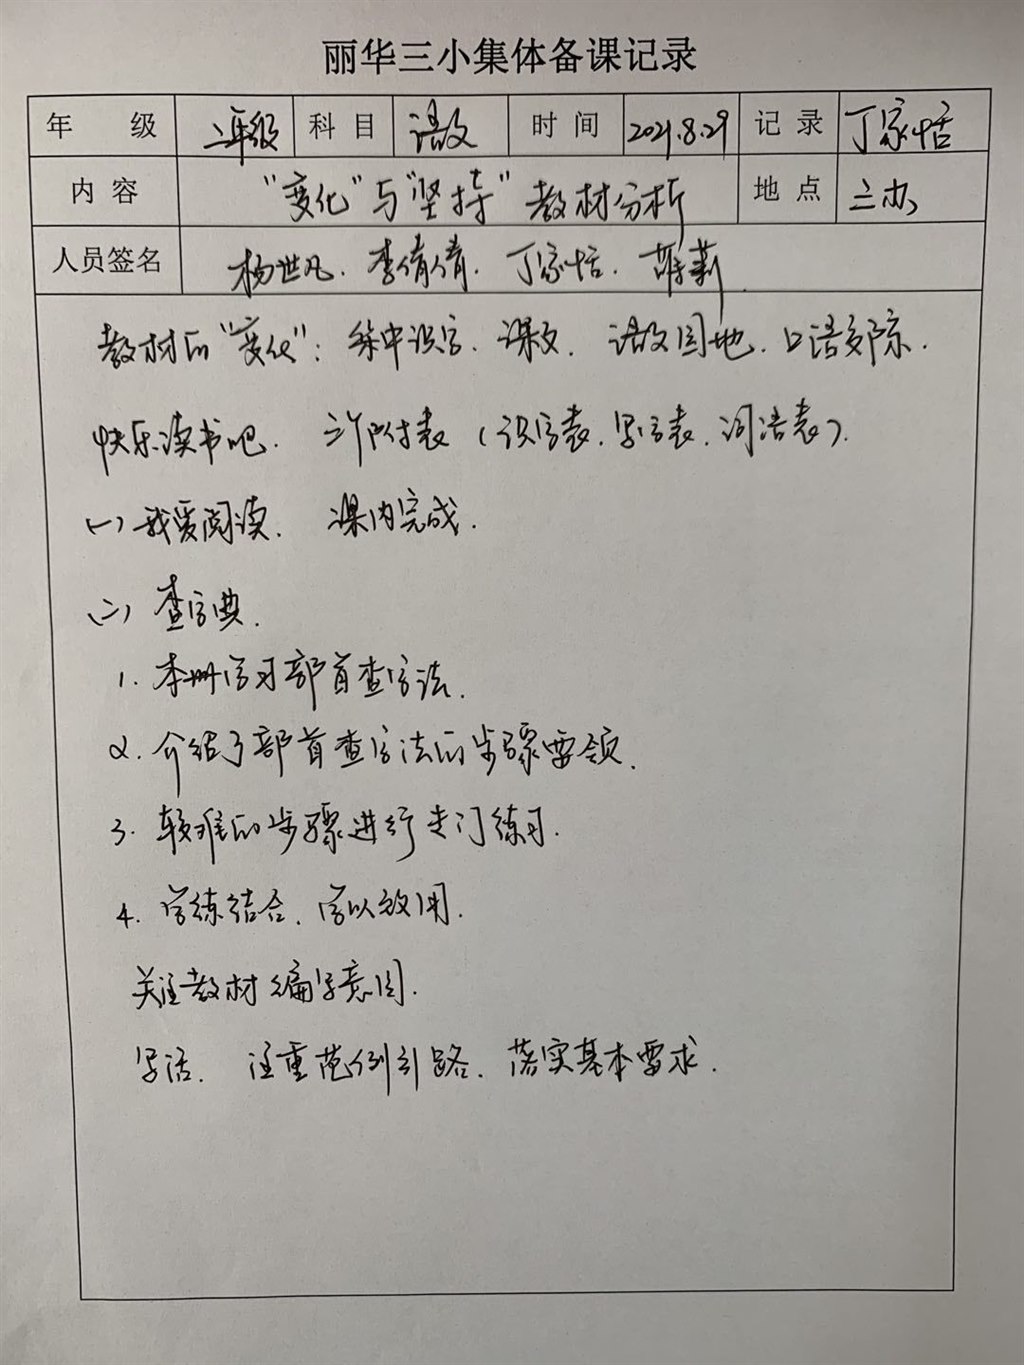 丽华三小集体备课记录
年 级 二年级 科 目 语文 时 间 2021.8.29 记 录 丁家恬
内 容 “变化”与“坚持”教材分析 地 点 三办
人员签名 杨世凡、李倩倩、丁家恬、莉
教材的“变化”：集中识字、课文、语文园地、口语交际、
快乐读书吧、三个附表（识字表、写字表、词语表）.
(一) 我爱阅读、课内完成.
(二) 查字典.
1. 本册学习部首查字法.
2. 介绍了部首查字法的步骤要领.
3. 较难的步骤进行专门练习.
4. 学练结合、学以致用.
关注教材编写意图.
写话、注重范例引路、落实基本要求.